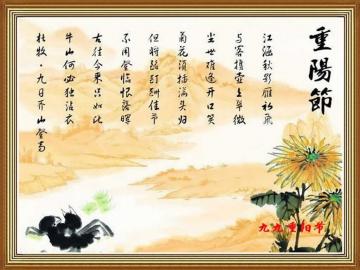 重陽節
江涵秋影雁初飞
与客携壶上翠微
尘世难逢开口笑
菊花须插满头归
但将酩酊酬佳节
不用登临恨落晖
古往今来只如此
牛山何必独沾衣
杜牧·九日齐山登高
九九重阳节